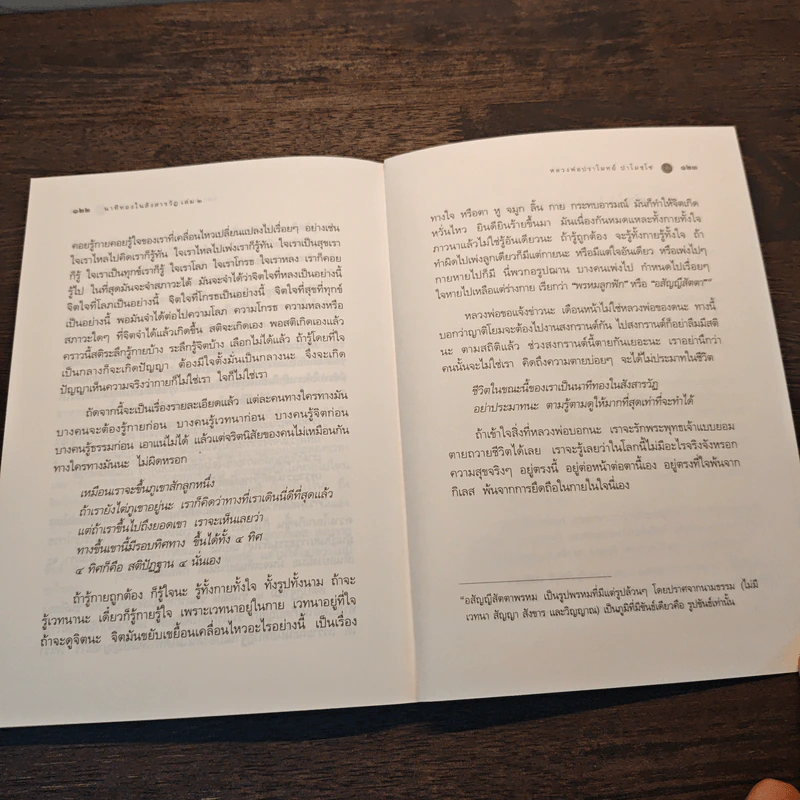 ๑๒๒ นาทีทองในสังสารวัฏ เล่ม ๒
คอยรู้กายคอยรู้ใจของเราที่เคลื่อนไหวเปลี่ยนแปลงไปเรื่อยๆ อย่างเช่น
ใจเราไหลไปคิดเราก็รู้ทัน ใจเราไหลไปเพ่งเราก็รู้ทัน ใจเราเป็นสุขเรา
ก็รู้ ใจเราเป็นทุกข์เราก็รู้ ใจเราโลภ ใจเราโกรธ ใจเราหลง เราก็คอย
รู้ไป ในที่สุดมันจะจำสภาวะได้ มันจะจำได้ว่าจิตใจที่หลงเป็นอย่างนี้
จิตใจที่โลภเป็นอย่างนี้ จิตใจที่โกรธเป็นอย่างนี้ จิตใจที่สุขที่ทุกข์
เป็นอย่างนี้ พอมันจำได้ต่อไปความโลภ ความโกรธ ความหลงหรือ
สภาวะใดๆ ที่จิตจำได้แล้วเกิดขึ้น สติจะเกิดเอง พอสติเกิดเองแล้ว
คราวนี้สติระลึกรู้กายบ้าง ระลึกรู้จิตบ้าง เลือกไม่ได้แล้ว ถ้ารู้โดยที่ใจ
เป็นกลางก็จะเกิดปัญญา ต้องมีใจตั้งมั่นเป็นกลางนะ จึงจะเกิด
ปัญญาเห็นความจริงว่ากายก็ไม่ใช่เรา ใจก็ไม่ใช่เรา
ถัดจากนี้จะเป็นเรื่องรายละเอียดแล้ว แต่ละคนทางใครทางมัน
บางคนจะต้องรู้กายก่อน บางคนรู้เวทนาก่อน บางคนรู้จิตก่อน
บางคนรู้ธรรมก่อน เอาแน่ไม่ได้ แล้วแต่จริตนิสัยของคนไม่เหมือนกัน
ทางใครทางมันนะ ไม่ผิดหรอก
เหมือนเราจะขึ้นภูเขาสักลูกหนึ่ง
ถ้าเรายังไต่ภูเขาอยู่นะ เราก็คิดว่าทางที่เราเดินนี่ดีที่สุดแล้ว
แต่ถ้าเราขึ้นไปถึงยอดเขา เราจะเห็นเลยว่า
ทางขึ้นเขานี้มีรอบทิศทาง ขึ้นได้ทั้ง ๔ ทิศ
๔ ทิศก็คือ สติปัฏฐาน ๔ นั่นเอง
ถ้ารู้กายถูกต้อง ก็รู้ใจนะ รู้ทั้งกายทั้งใจ ทั้งรูปทั้งนาม ถ้าจะ
รู้เวทนานะ เดี๋ยวก็รู้กายรู้ใจ เพราะเวทนาอยู่ในกาย เวทนาอยู่ที่ใจ
ถ้าจะดูจิตนะ จิตมันขยับเขยื้อนเคลื่อนไหวอะไรอย่างนี้ เป็นเรื่อง
หลวงพ่อปราโมทย์ ปาโมชฺโช ๑๒๓
ทางใจ หรือตา หู จมูก ลิ้น กาย กระทบอารมณ์ มันก็ทำให้จิตเกิด
หวั่นไหว ยินดียินร้ายขึ้นมา มันเนื่องกันหมดแหละทั้งกายทั้งใจ
ภาวนาแล้วไม่ใช่รู้อันเดียวนะ ถ้ารู้ถูกต้อง จะรู้ทั้งกายรู้ทั้งใจ ถ้า
ทำผิดไปเพ่งลูกเดียวก็มีแต่กายนะ หรือมีแต่ใจอันเดียว หรือเพ่งไปๆ
กายหายไปก็มี นี่พวกอรูปฌาน บางคนเพ่งไป กำหนดไปเรื่อยๆ
ใจหายไปเหลือแต่ร่างกาย เรียกว่า "พรหมลูกฟัก" หรือ "อสัญญีสัตตา*"
หลวงพ่อขอแจ้งข่าวนะ เดือนหน้าไม่ใช่หลวงพ่อของดนะ ทางนี้
บอกว่าญาติโยมจะต้องไปงานสงกรานต์กัน ไปสงกรานต์ก็อย่าลืมมีสติ
นะ ตามสถิติแล้ว ช่วงสงกรานต์นี้ตายกันเยอะนะ เราอย่านึกว่า
คนนั้นจะไม่ใช่เรา คิดถึงความตายบ่อยๆ จะได้ไม่ประมาทในชีวิต
ชีวิตในขณะนี้ของเราเป็นนาทีทองในสังสารวัฏ
อย่าประมาทนะ ตามรู้ตามดูให้มากที่สุดเท่าที่จะทำได้
ถ้าเข้าใจสิ่งที่หลวงพ่อบอกนะ เราจะรักพระพุทธเจ้าแบบยอม
ตายถวายชีวิตได้เลย เราจะรู้เลยว่าในโลกนี้ไม่มีอะไรจริงจังหรอก
ความสุขจริงๆ อยู่ตรงนี้ อยู่ต่อหน้าต่อตานี้เอง อยู่ตรงที่ใจพ้นจาก
กิเลส พ้นจากการยึดถือในกายในใจนี่เอง
*อสัญญีสัตตาพรหม เป็นรูปพรหมที่มีแต่รูปล้วนๆ โดยปราศจากนามธรรม (ไม่มี
เวทนา สัญญา สังขาร และวิญญาณ) เป็นภูมิที่มีขันธ์เดียวคือ รูปขันธ์เท่านั้น